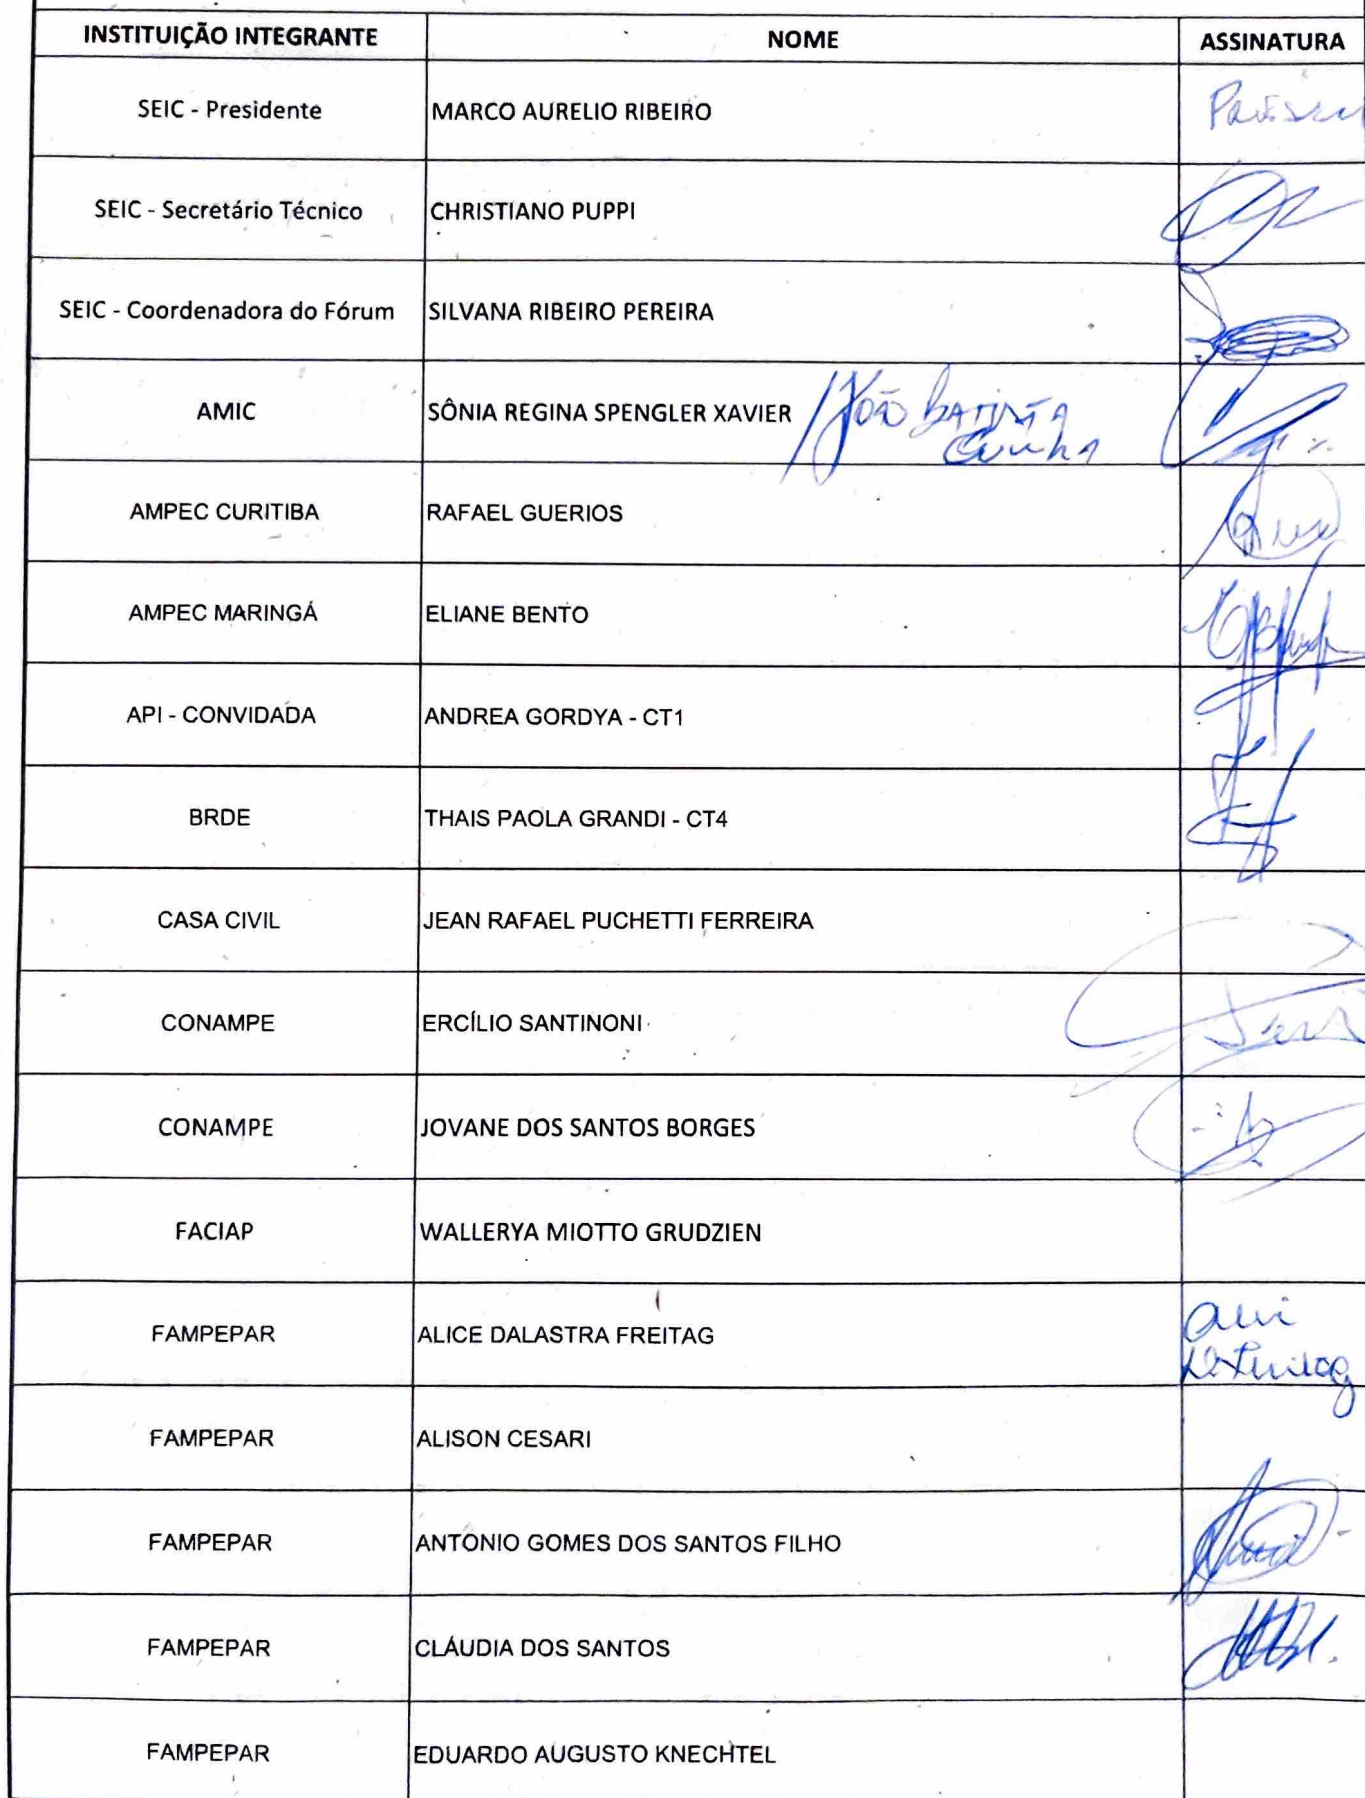 INSTITUIÇÃO INTEGRANTE NOME ASSINATURA
SEIC - Presidente MARCO AURELIO RIBEIRO
SEIC - Secretário Técnico CHRISTIANO PUPPI
SEIC - Coordenadora do Fórum SILVANA RIBEIRO PEREIRA
AMIC SÔNIA REGINA SPENGLER XAVIER / JOÃO BATISTA
Cunha
AMPEC CURITIBA RAFAEL GUERIOS
AMPEC MARINGÁ ELIANE BENTO
API - CONVIDADA ANDREA GORDYA - CT1
BRDE THAIS PAOLA GRANDI - CT4
CASA CIVIL JEAN RAFAEL PUCHETTI FERREIRA
CONAMPE ERCÍLIO SANTINONI
CONAMPE JOVANE DOS SANTOS BORGES
FACIAP WALLERYA MIOTTO GRUDZIEN
FAMPEPAR ALICE DALASTRA FREITAG
FAMPEPAR ALISON CESARI
FAMPEPAR ANTÔNIO GOMES DOS SANTOS FILHO
FAMPEPAR CLÁUDIA DOS SANTOS
FAMPEPAR EDUARDO AUGUSTO KNECHTEL